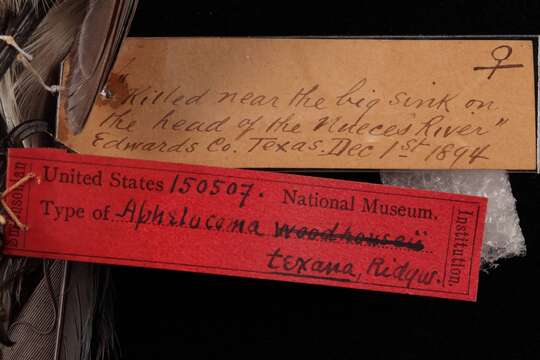 ♀
"Killed near the big sink on
the head of the Nueces River"
Edwards Co. Texas. Dec 1st 1894
United States 150507. National Museum.
Type of Aphelocoma woodhouseii
texana, Ridgw.
Smithsonian
Institution.